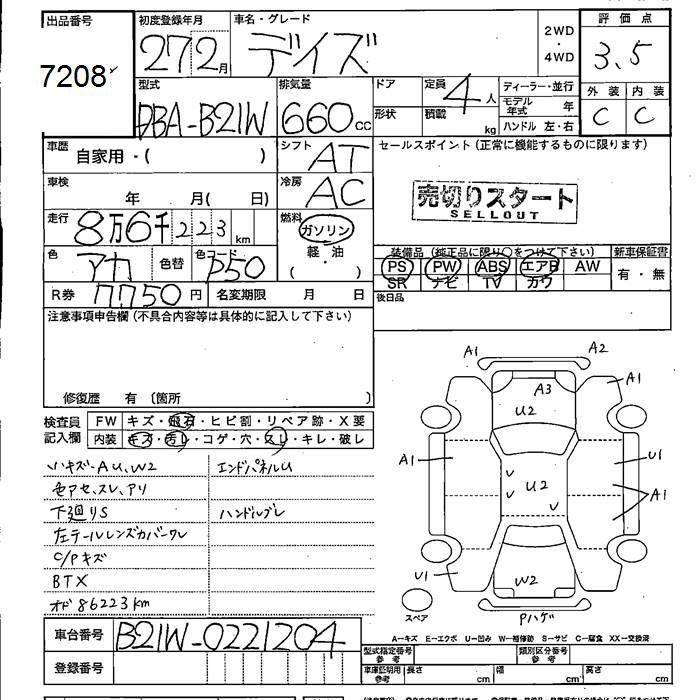 出品番号
7208
初度登録年月
27 2月
車名・グレード
デイズ
2WD
・
4WD
評価点
3.5
外装 内装
C C
型式
DBA-B21W
排気量
660cc
ドア
形状
定員
4人
積載
kg
ディーラー・並行
モデル年式 年
ハンドル 左・右
車歴
自家用・( )
シフト
AT
セールスポイント (正常に機能するものに限ります)
車検
年 月( 日)
冷房
AC
売切りスタート
SELLOUT
走行
8万6千223km
燃料
ガソリン
軽・油
( ・ )
色
アカ
色替
色コード
P50
装備品 (純正品に限り○をつけて下さい)
新車保証書
PS PW ABS エアB AW
SR ナビ TV カワ
有・無
R券 7750円
名変期限 月 日
後日品
注意事項申告欄 (不具合内容等は具体的に記入して下さい)
修復歴 有 (箇所 )
検査員
記入欄
FW キズ・飛石・ヒビ割・リペア跡・X要
内装 キズ・汚レ・コゲ・穴・スレ・キレ・破レ
小キズ-AU、W2
色アセ、スレ、アリ
下廻りS
左テールレンズカバーワレ
C/Pキズ
BTX
オド86223km
エンドパネルU
ハンドルブレ
A1
A2
A1
A3
A1
U2
A1
U1
U
U2
A1
U
U
U1
W2
スペア
Pハゲ
A-キズ E-エクボ U-凹み W-補修跡 S-サビ C-腐食 XX-交換済
車台番号
B21W-0221204
登録番号
型式指定番号
参考
類別区分番号
参考
車庫証明用
参考
長さ cm
幅 cm
高さ cm